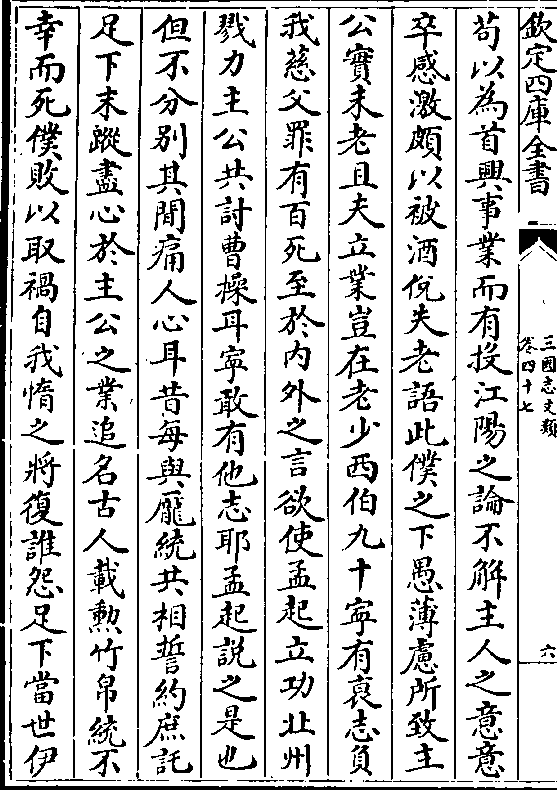 欽定四庫全書
三國志文類
卷四十七
六
苟以為首興事業而有投江陽之論不解主人之意意
卒感激頗以被酒侻失老語此僕之下愚薄慮所致主
公實未老且夫立業豈在老少西伯九十寧有衰志負
我慈父罪有百死至於內外之言欲使孟起立功北州
戮力主公共討曹操耳寧敢有他志耶孟起說之是也
但不分別其間痛人心耳昔每與龐統共相誓約庶託
足下末蹤盡心於主公之業追名古人載勲竹帛統不
幸而死僕敗以取禍自我惰之將復誰怨足下當世伊